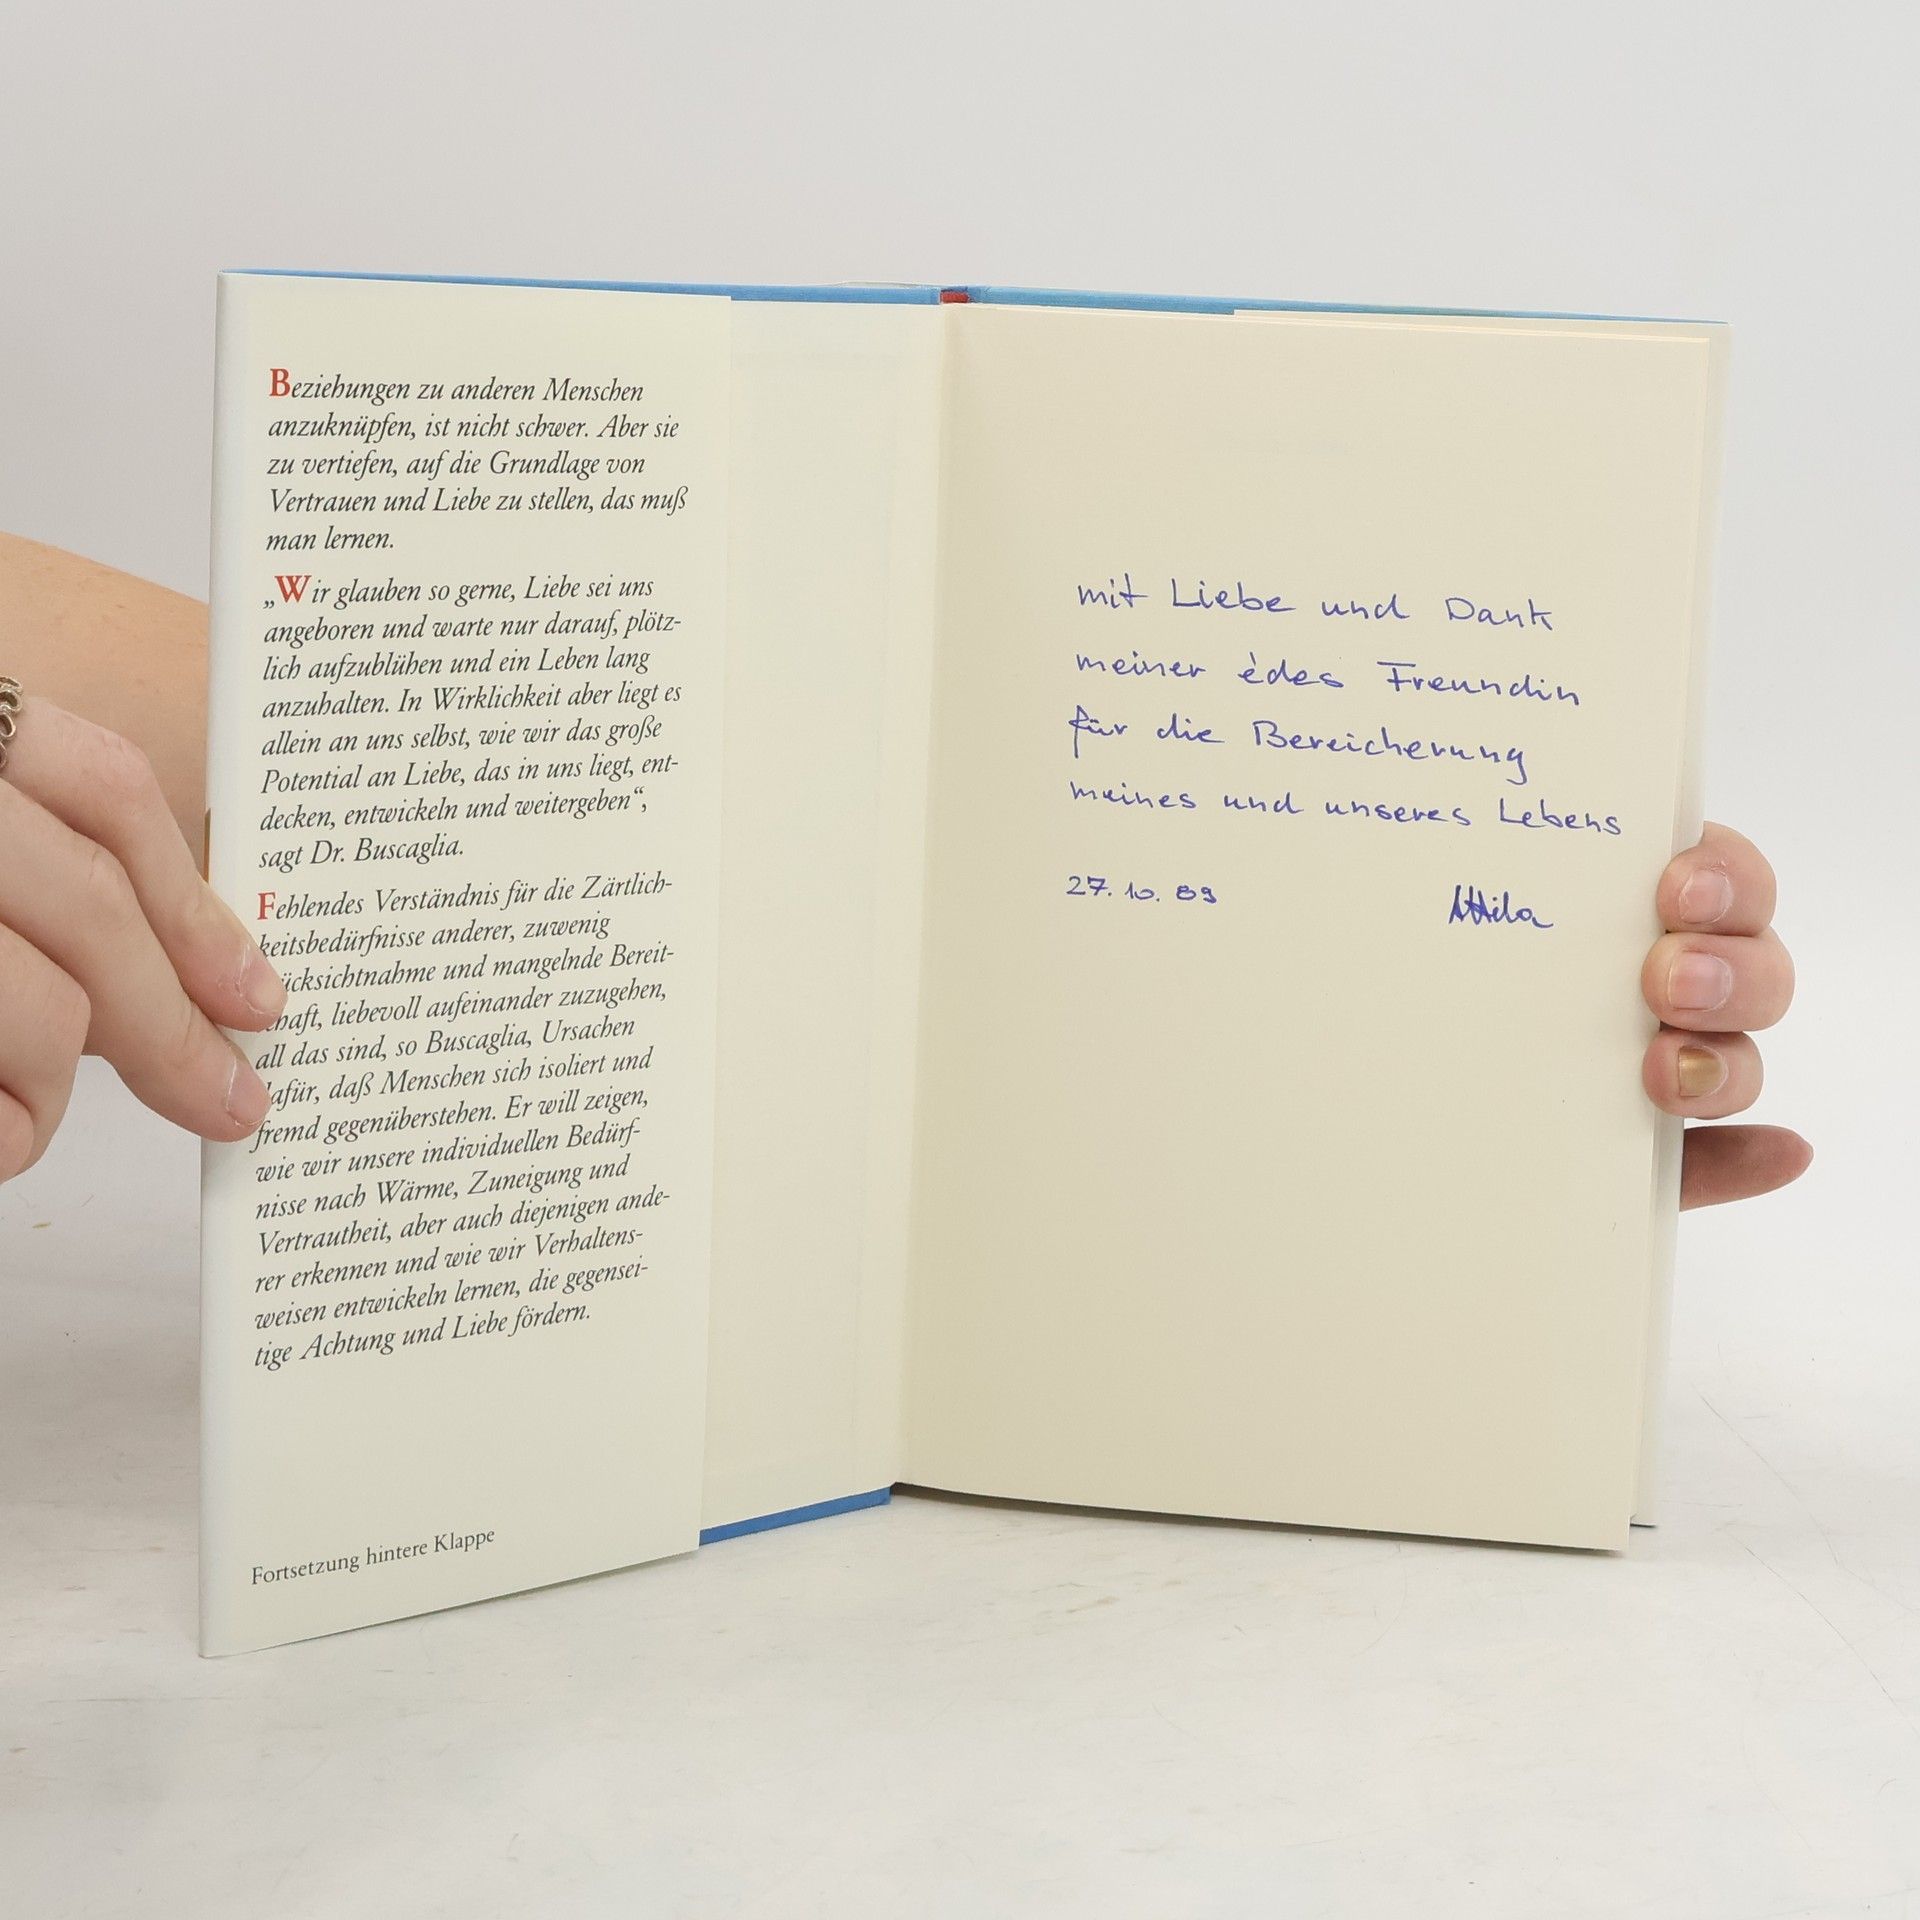 Beziehungen zu anderen Menschen
anzuknüpfen, ist nicht schwer. Aber sie
zu vertiefen, auf die Grundlage von
Vertrauen und Liebe zu stellen, das muß
man lernen.
„Wir glauben so gerne, Liebe sei uns
angeboren und warte nur darauf, plötz-
lich aufzublühen und ein Leben lang
anzuhalten. In Wirklichkeit aber liegt es
allein an uns selbst, wie wir das große
Potential an Liebe, das in uns liegt, ent-
decken, entwickeln und weitergeben“,
sagt Dr. Buscaglia.
Fehlendes Verständnis für die Zärtlich-
keitsbedürfnisse anderer, zuwenig
ücksichtnahme und mangelnde Bereit-
chaft, liebevoll aufeinander zuzugehen,
all das sind, so Buscaglia, Ursachen
dafür, daß Menschen sich isoliert und
fremd gegenüberstehen. Er will zeigen,
wie wir unsere individuellen Bedürf-
nisse nach Wärme, Zuneigung und
Vertrautheit, aber auch diejenigen ande-
rer erkennen und wie wir Verhaltens-
weisen entwickeln lernen, die gegensei-
tige Achtung und Liebe fördern.
Fortsetzung hintere Klappe
mit Liebe und Dank
meiner édes Freundin
für die Bereicherung
meines und unseres Lebens
27. 10. 89
Attila